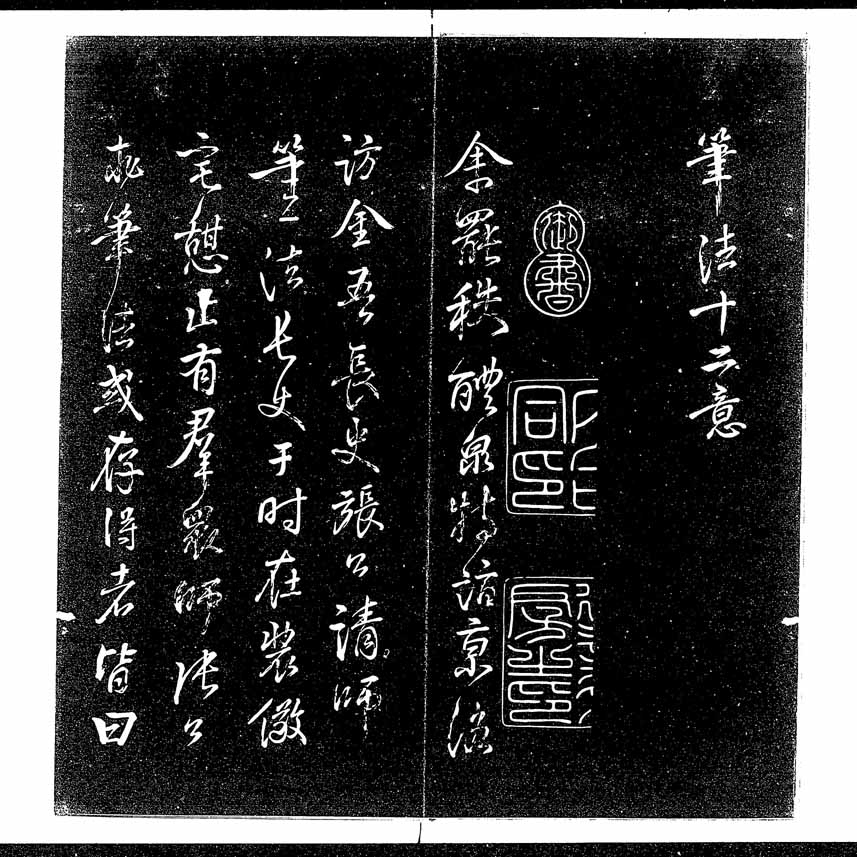 筆法十二意
御書
余罷秩醴泉特詣京洛
訪金吾長史張公請師
筆法長史于時在裴儆
宅憩止有羣眾師張公
求筆法或存得者皆曰